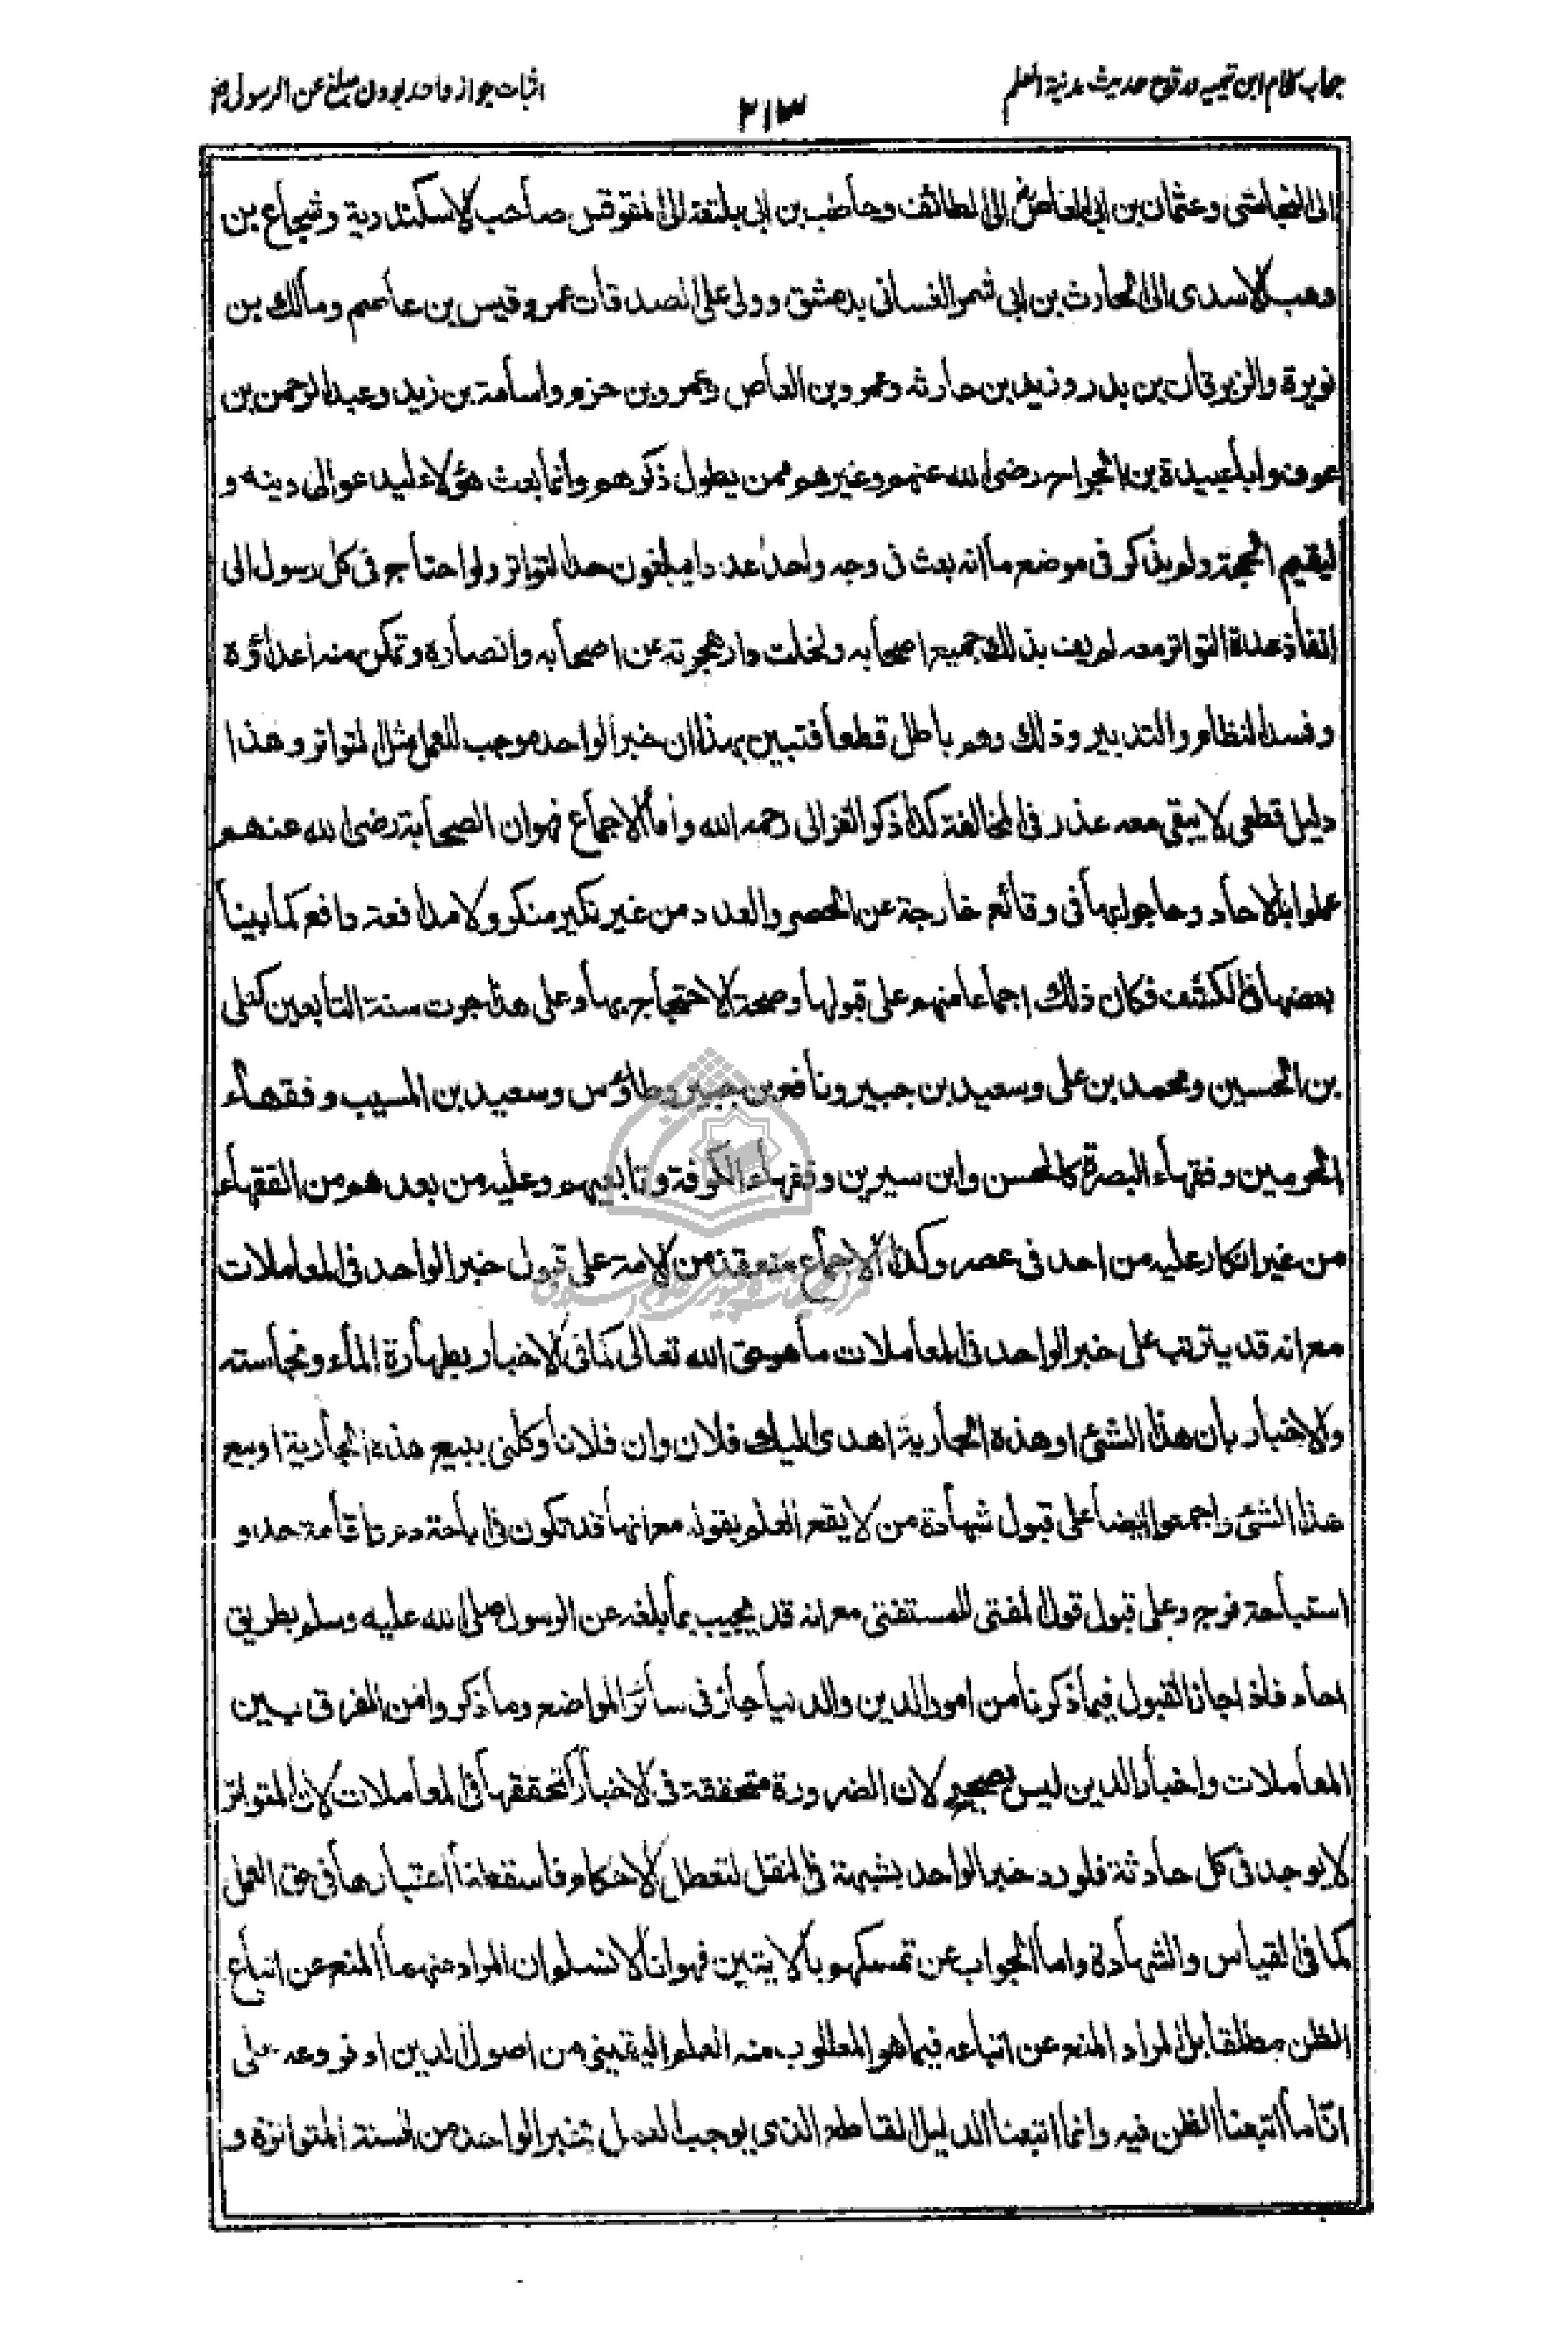 جواب کلام ابن تیمیه در قدح حدیث مدینة العلم
۲۱۳
اثبات جواز واحد بودن مبلغ عن الرسول ص
الى النجاشى وعثمان بن ابى العاص الى الطائف وحاطب بن ابى بلتعة الى المقوقس صاحب الاسكندرية وشجاع بن
وهب الاسدى الى الحارث بن ابى شمر الغسانى بدمشق وولى على الصدقات عمر وقيس بن عاصم ومالك بن
نويرة والزبرقان بن بدر وزيد بن حارثه وعمرو بن العاص وعمرو بن حزم واسامة بن زيد وعبد الرحمن بن
عوف وابا عبيدة بن الجراح رضى الله عنهم وغيرهم ممن يطول ذكرهم وانما بعث هؤلاء ليدعوا الى دينه و
ليقيم الحجة ولم يذكر فى موضع ما انه بعث فى وجه واحد عددا يبلغون حد التواتر ولو احتاج فى كل رسول الى
انفاذ عدة التواتر معه لم يف بذلك جميع اصحابه ولخلت دار هجرته عن اصحابه وانصاره وتمكن منه اعداؤه
وفسد النظام والتدبير وذلك وهم باطل قطعا فتبين بهذا ان خبر الواحد موجب للعمل مثل المتواتر وهذا
دليل قطعى لا يبقى معه عذر فى المخالفة كذا ذكر الغزالى رحمه الله واما الاجماع فهو ان الصحابة رضى الله عنهم
عملوا بالاحاد وحاجوا بها فى وقائع خارجة عن الحصر والعدد من غير نكير منكر ولا مدافعة دافع كما بينا
بعضها فى الكشف فكان ذلك اجماعا منهم على قبولها وصحة الاحتجاج بها وعلى هذا جرت سنة التابعين كعلى
بن الحسين ومحمد بن على وسعيد بن جبير ونافع بن جبير وطاؤس وسعيد بن المسيب وفقهاء
الحرمين وفقهاء البصرة كالحسن وابن سيرين وفقهاء الكوفة وتابعيهم وعليه من بعدهم من الفقهاء
من غير انكار عليه من احد فى عصر وكذا الاجماع منعقد من الامة على قبول خبر الواحد فى المعاملات
مع انه قد يترتب على خبر الواحد فى المعاملات ما هو حق الله تعالى كما فى الاخبار بطهارة الماء ونجاسته
والاخبار بان هذا الشئ او هذه الجارية اهدى اليك فلان وان فلانا وكلنى ببيع هذه الجارية او بيع
هذا الشئ واجمعوا ايضا على قبول شهادة من لا يقع العلم بقوله مع انها قد تكون فى اباحة دم واقامة حد و
استباحة فرج وعلى قبول قول المفتى للمستفتى مع انه قد يجيب بما بلغه عن الرسول صلى الله عليه وسلم بطريق
احاد فاذا جاز القبول فيما ذكرنا من امور الدين والدنيا جاز فى سائر المواضع وما ذكروا من الفرق بين
المعاملات واخبار الدين ليس بصحيح لان الضرورة متحققة فى الاخبار كتحققها فى المعاملات لان المتواتر
لا يوجد فى كل حادثة فلو رد خبر الواحد بشبهة فى النقل لتعطل الاحكام فاسقطنا اعتبارها فى حق العمل
كما فى القياس والشهادة واما الجواب عن تمسكهم بالايتين فهو انا لا نسلم ان المراد عنهما المنع عن اتباع
الظن مطلقا بل المراد المنع عن اتباعه فيما هو المطلوب منه العلم اليقينى من اصول الدين او فروعه على
انا ما اتبعنا الظن فيه وانما اتبعنا الدليل القاطع الذى يوجب العمل بخبر الواحد من السنة المتواترة و